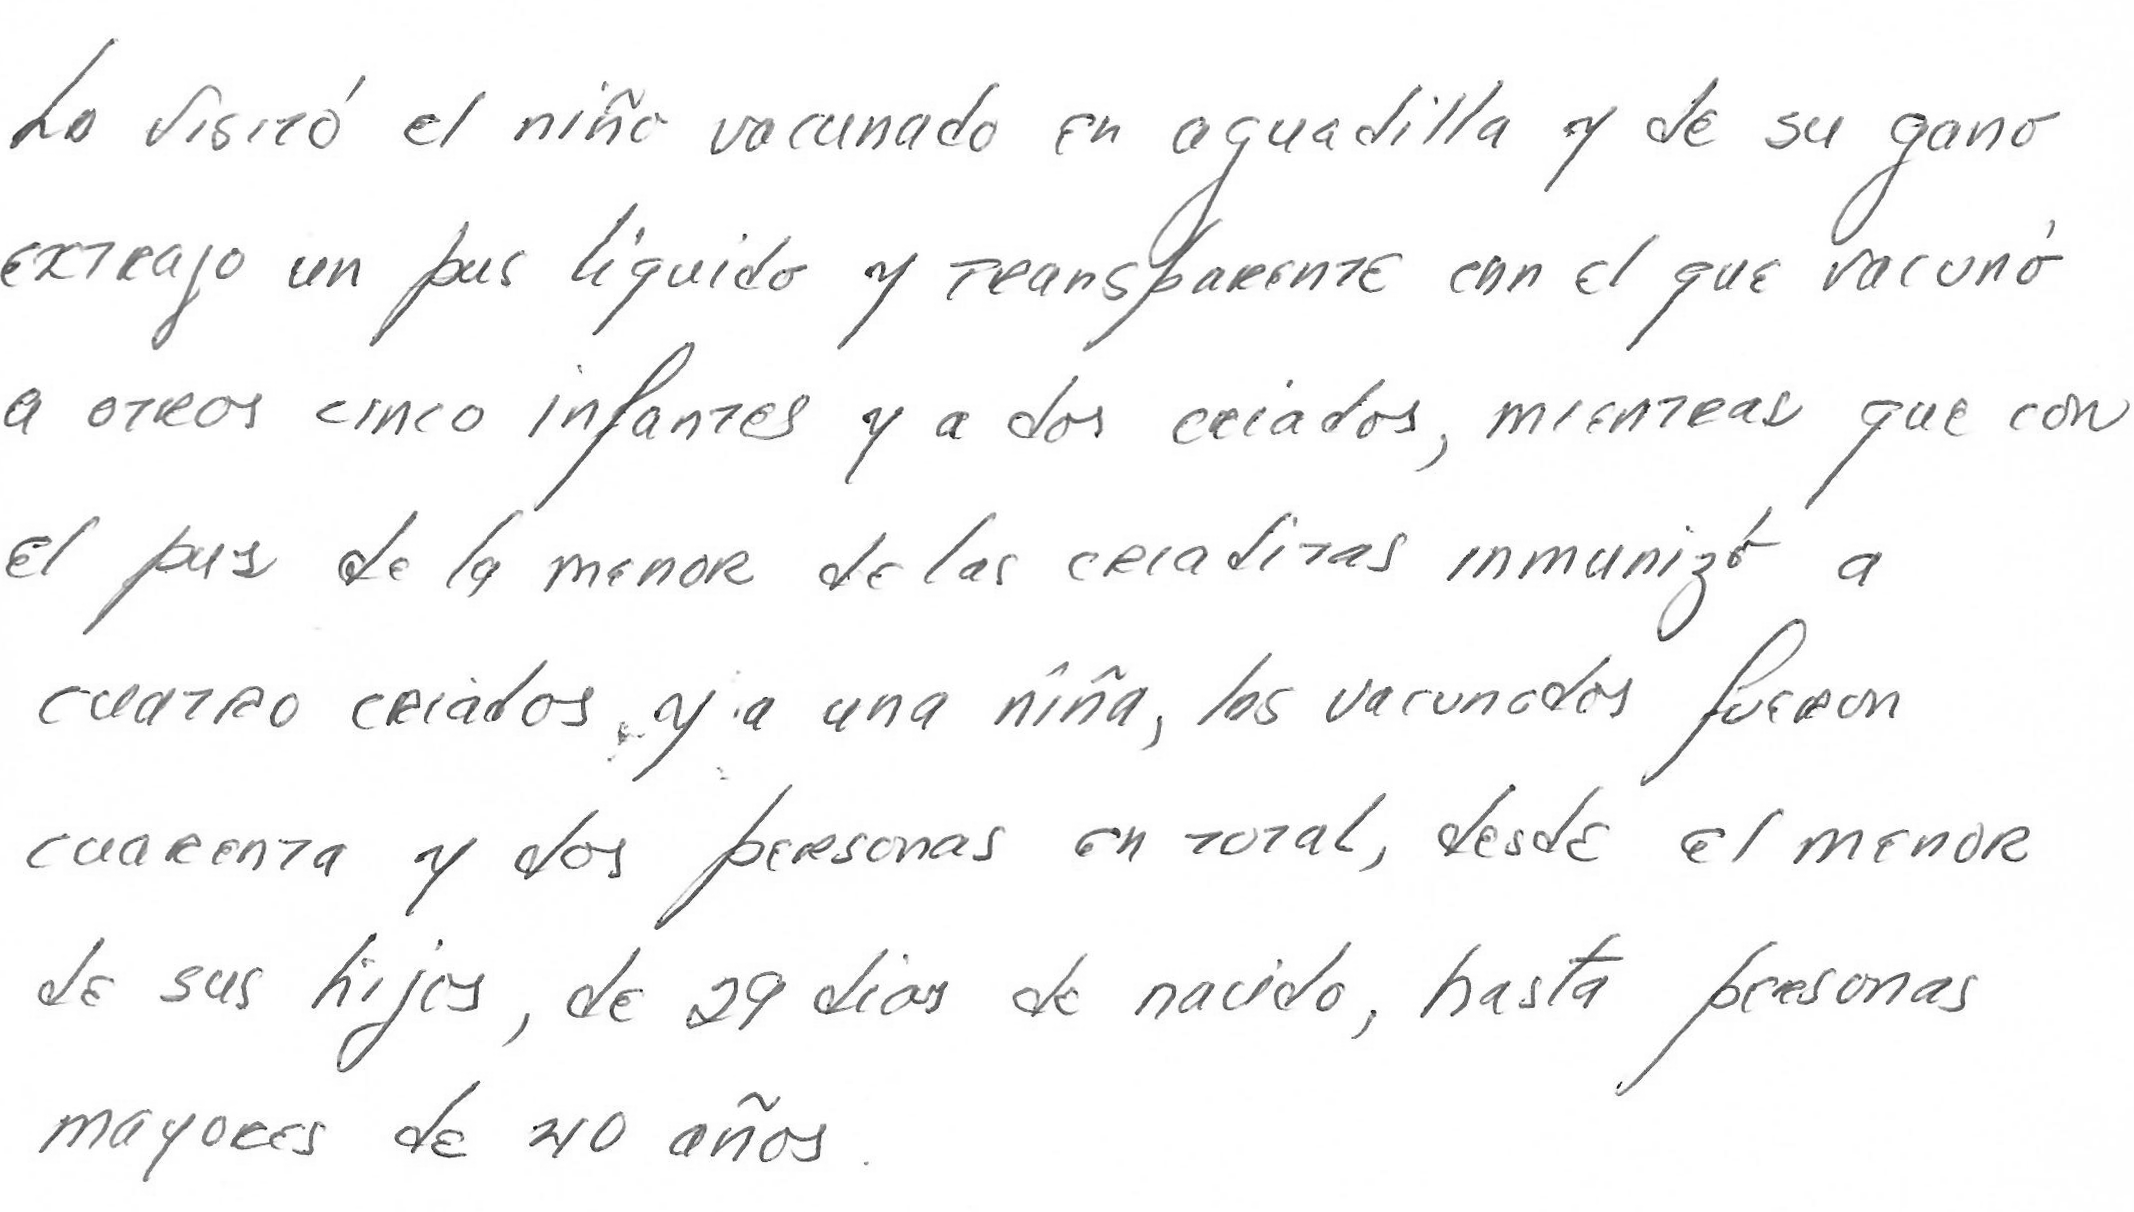 Lo visitó el niño vacunado en aguadilla y de su gano
extrajo un pus líquido y transparente con el que vacunó
a otros cinco infantes y a dos criados, mientras que con
el pus de la menor de las criaditas inmunizó a
cuatro criados, y a una niña, los vacunados fueron
cuarenta y dos personas en total, desde el menor
de sus hijos, de 29 dias de nacido, hasta personas
mayores de 40 años.